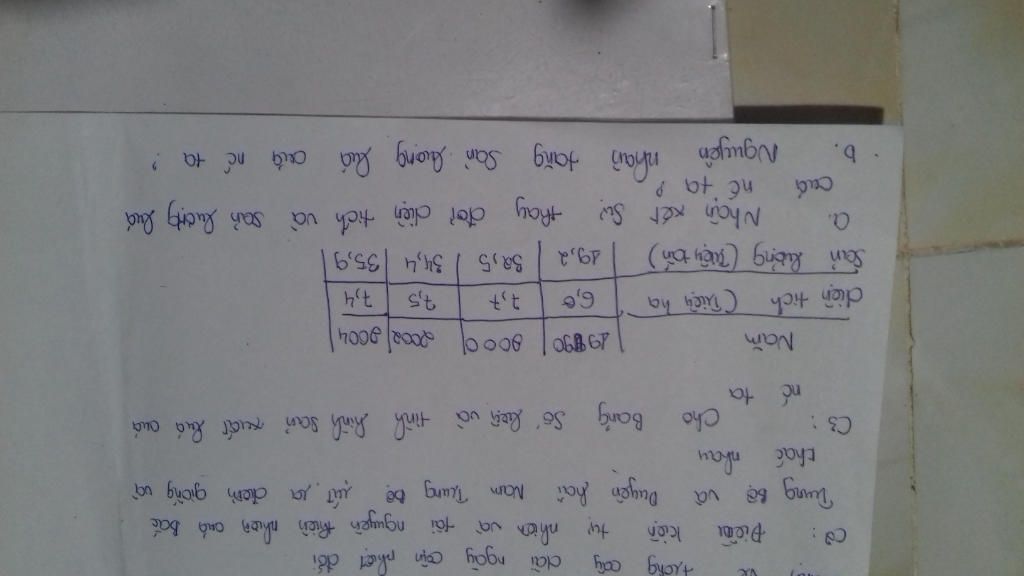 về trồng cây dài ngày cận nhiệt đới
C2: Điều kiện tự nhiên và tài nguyên thiên nhiên của Bắc
Trung Bộ và Duyên hải Nam Trung Bộ rút ra điểm giống và
khác nhau
C3: Cho Bảng số liệu và tình hình sản xuất lúa của
nc ta
Năm | 1990 | 2000 | 2002 | 2004
diện tích (Triệu ha | 6,0 | 7,7 | 7,5 | 7,4
sản lượng (Triệu tấn) | 19,2 | 32,5 | 34,4 | 35,9
a. Nhận xét sự thay đổi diện tích và sản lượng lúa
của nc ta?
b. Nguyên nhân tăng sản lượng lúa của nc ta?